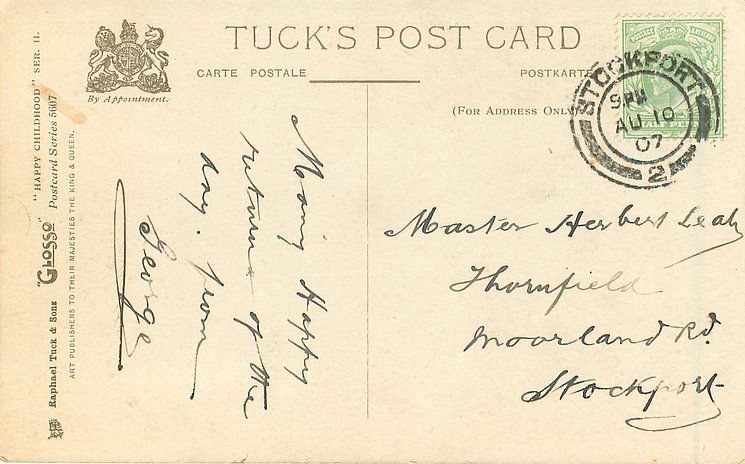 TUCK'S POST CARD
CARTE POSTALE
POSTKARTE
(FOR ADDRESS ONLY)
By Appointment.
"HAPPY CHILDHOOD" SER. II.
"GLOSSO" Postcard Series 5607
Raphael Tuck & Sons
ART PUBLISHERS TO THEIR MAJESTIES THE KING & QUEEN.
STOCKPORT
9 PM
AU 10
07
2
HALF PENNY
Many Happy
returns of the
day. from
George
Master Herbert Leah
Thornfield
Moorland Rd.
Stockport